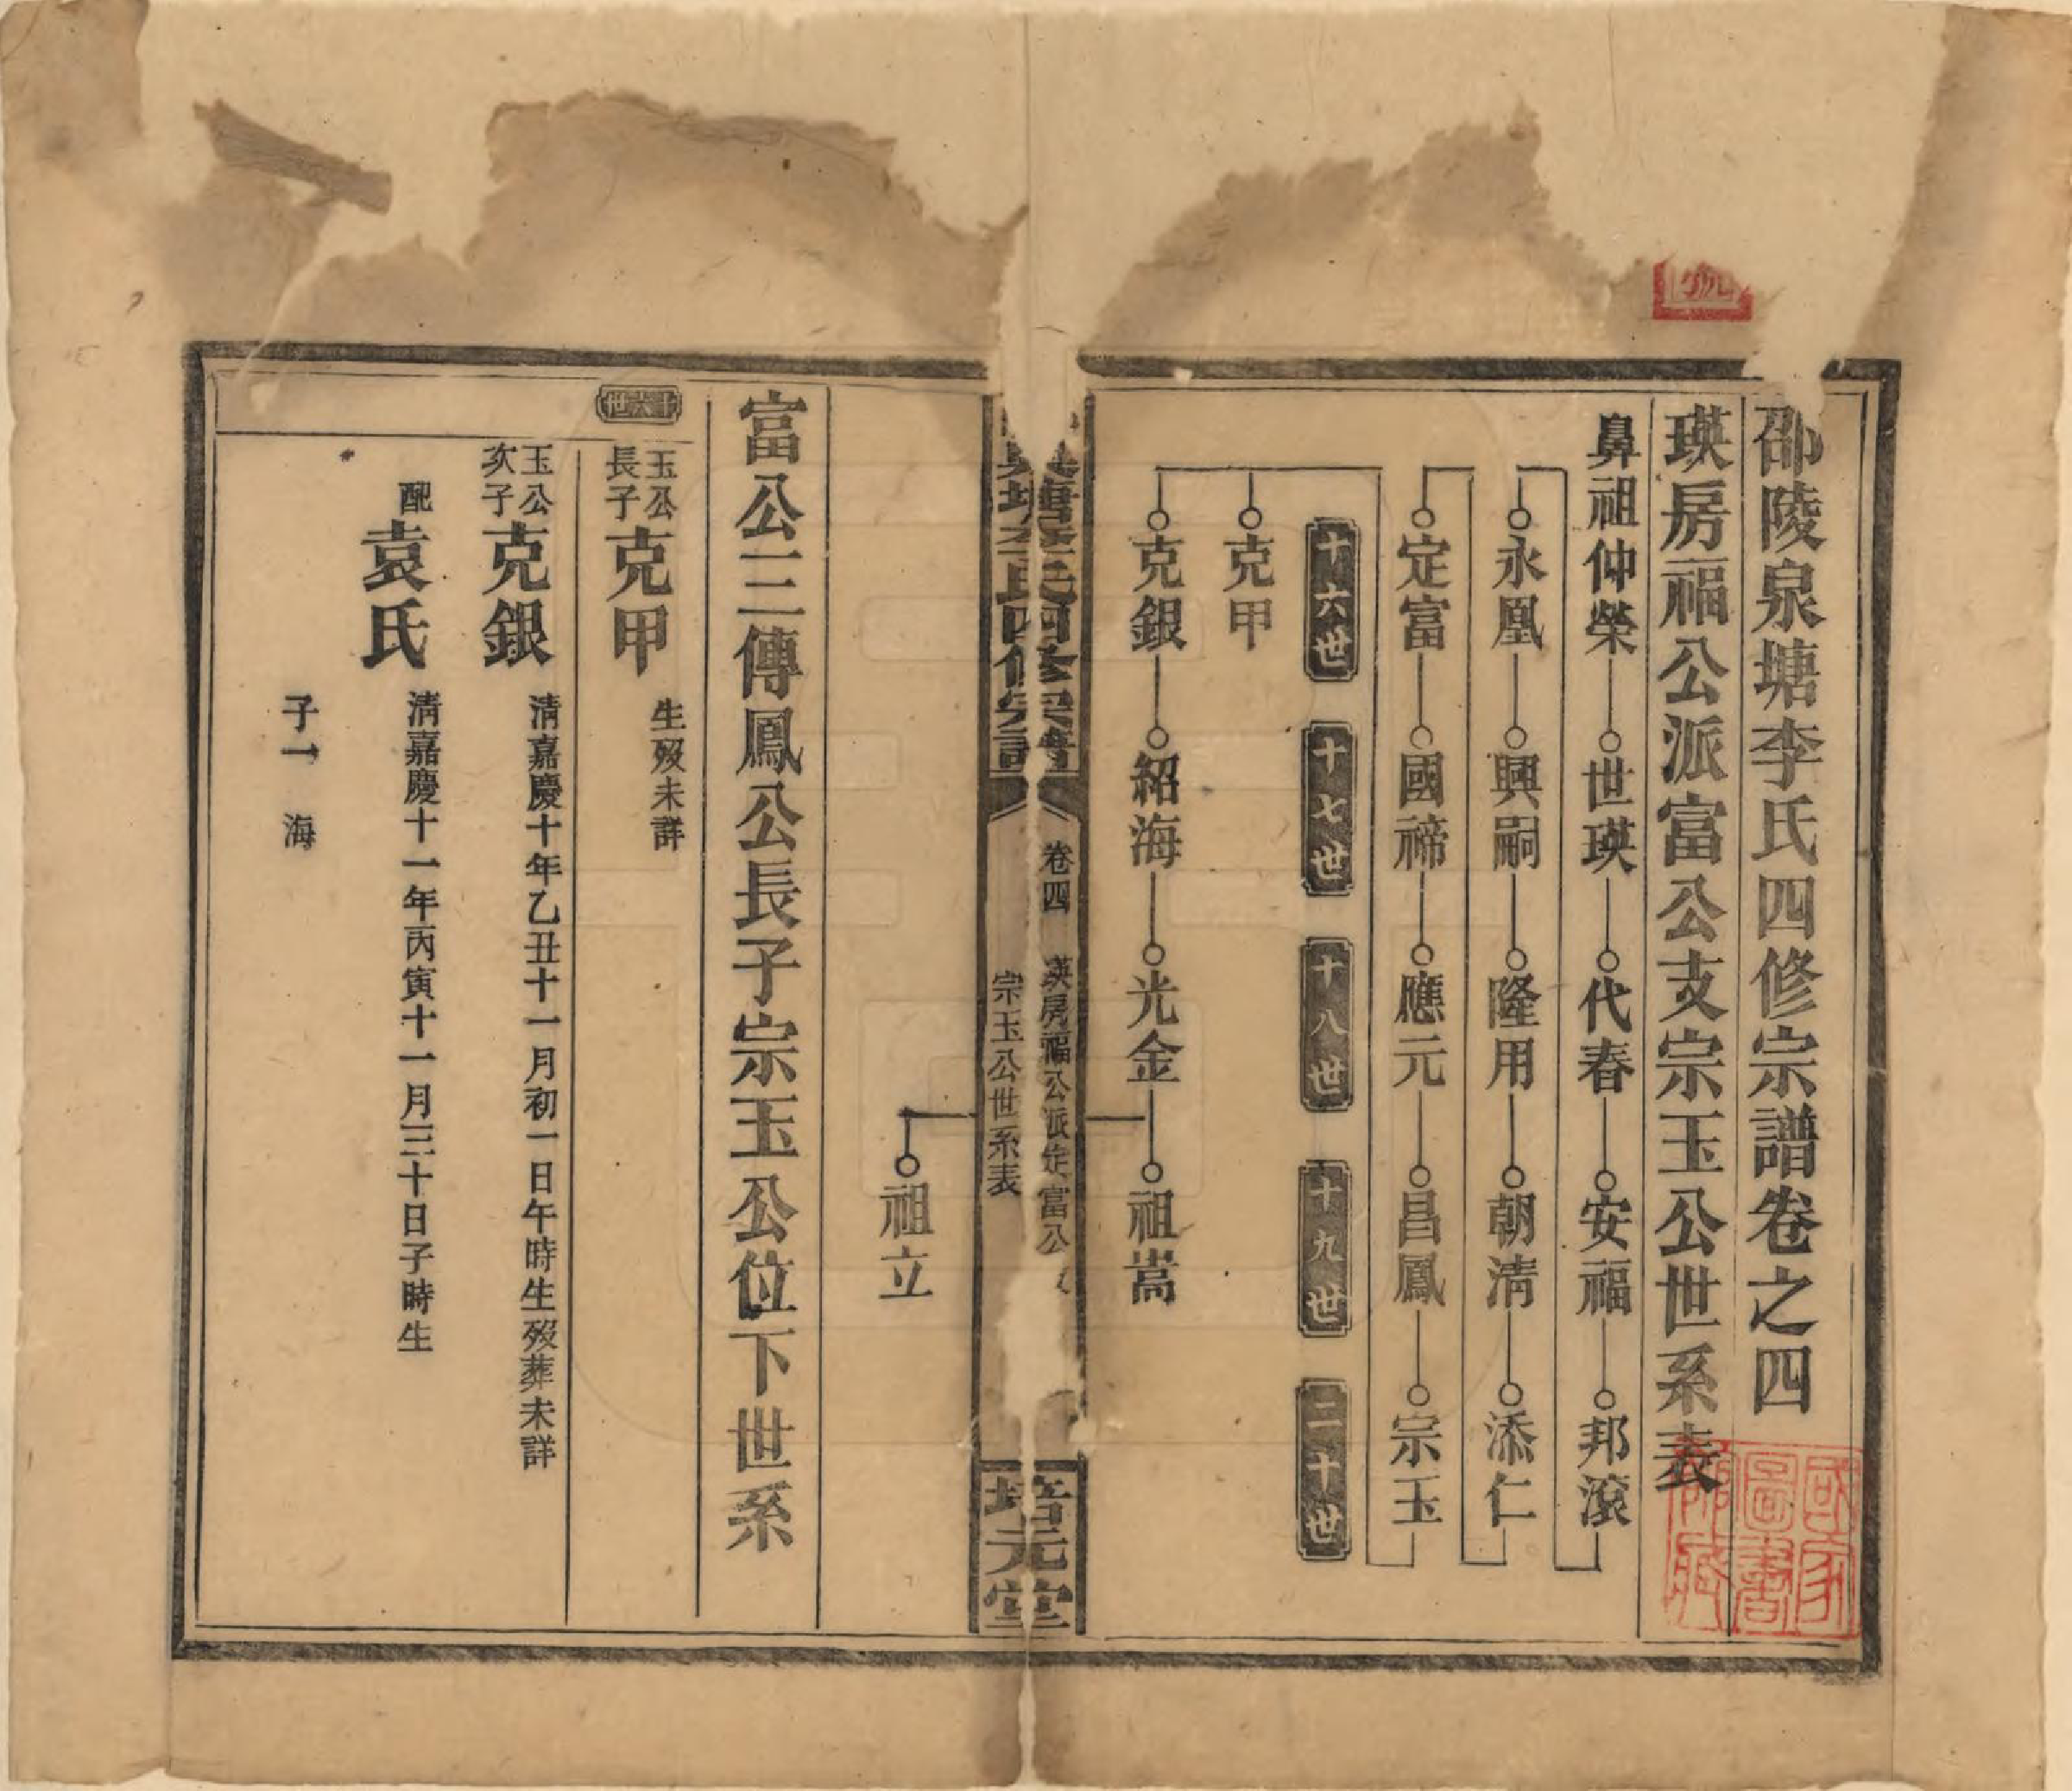 邵陵泉塘李氏四修宗譜卷之四
瑛房福公派富公支宗玉公世系表
鼻祖仲榮 世瑛 代春 安福 邦滾
永凰 興嗣 隆用 朝清 添仁
定富 國褅 應元 昌鳳 宗玉
十六世 十七世 十八世 十九世 二十世
克甲
克銀 紹海 光金 祖嵩
塘李氏四修宗譜
卷四 瑛房福公派定富公
宗玉公世系表
培元堂
祖立
富公三傳鳳公長子宗玉公位下世系
十六世
玉公
長子
克甲
生歿未詳
玉公
次子
克銀
清嘉慶十年乙丑十一月初一日午時生歿葬未詳
配
袁氏
清嘉慶十一年丙寅十一月三十日子時生
子一 海
國家
圖書
館藏